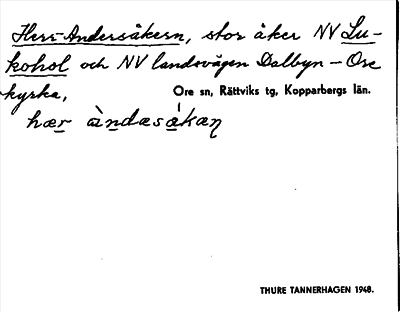 Herr-Andersåkern, stor åker NV Lu-
kohol och NV landsvägen Dalbyn – Ore
kyrka,
Ore sn, Rättviks tg, Kopparbergs län.
hær àndæsákæn
THURE TANNERHAGEN 1948.